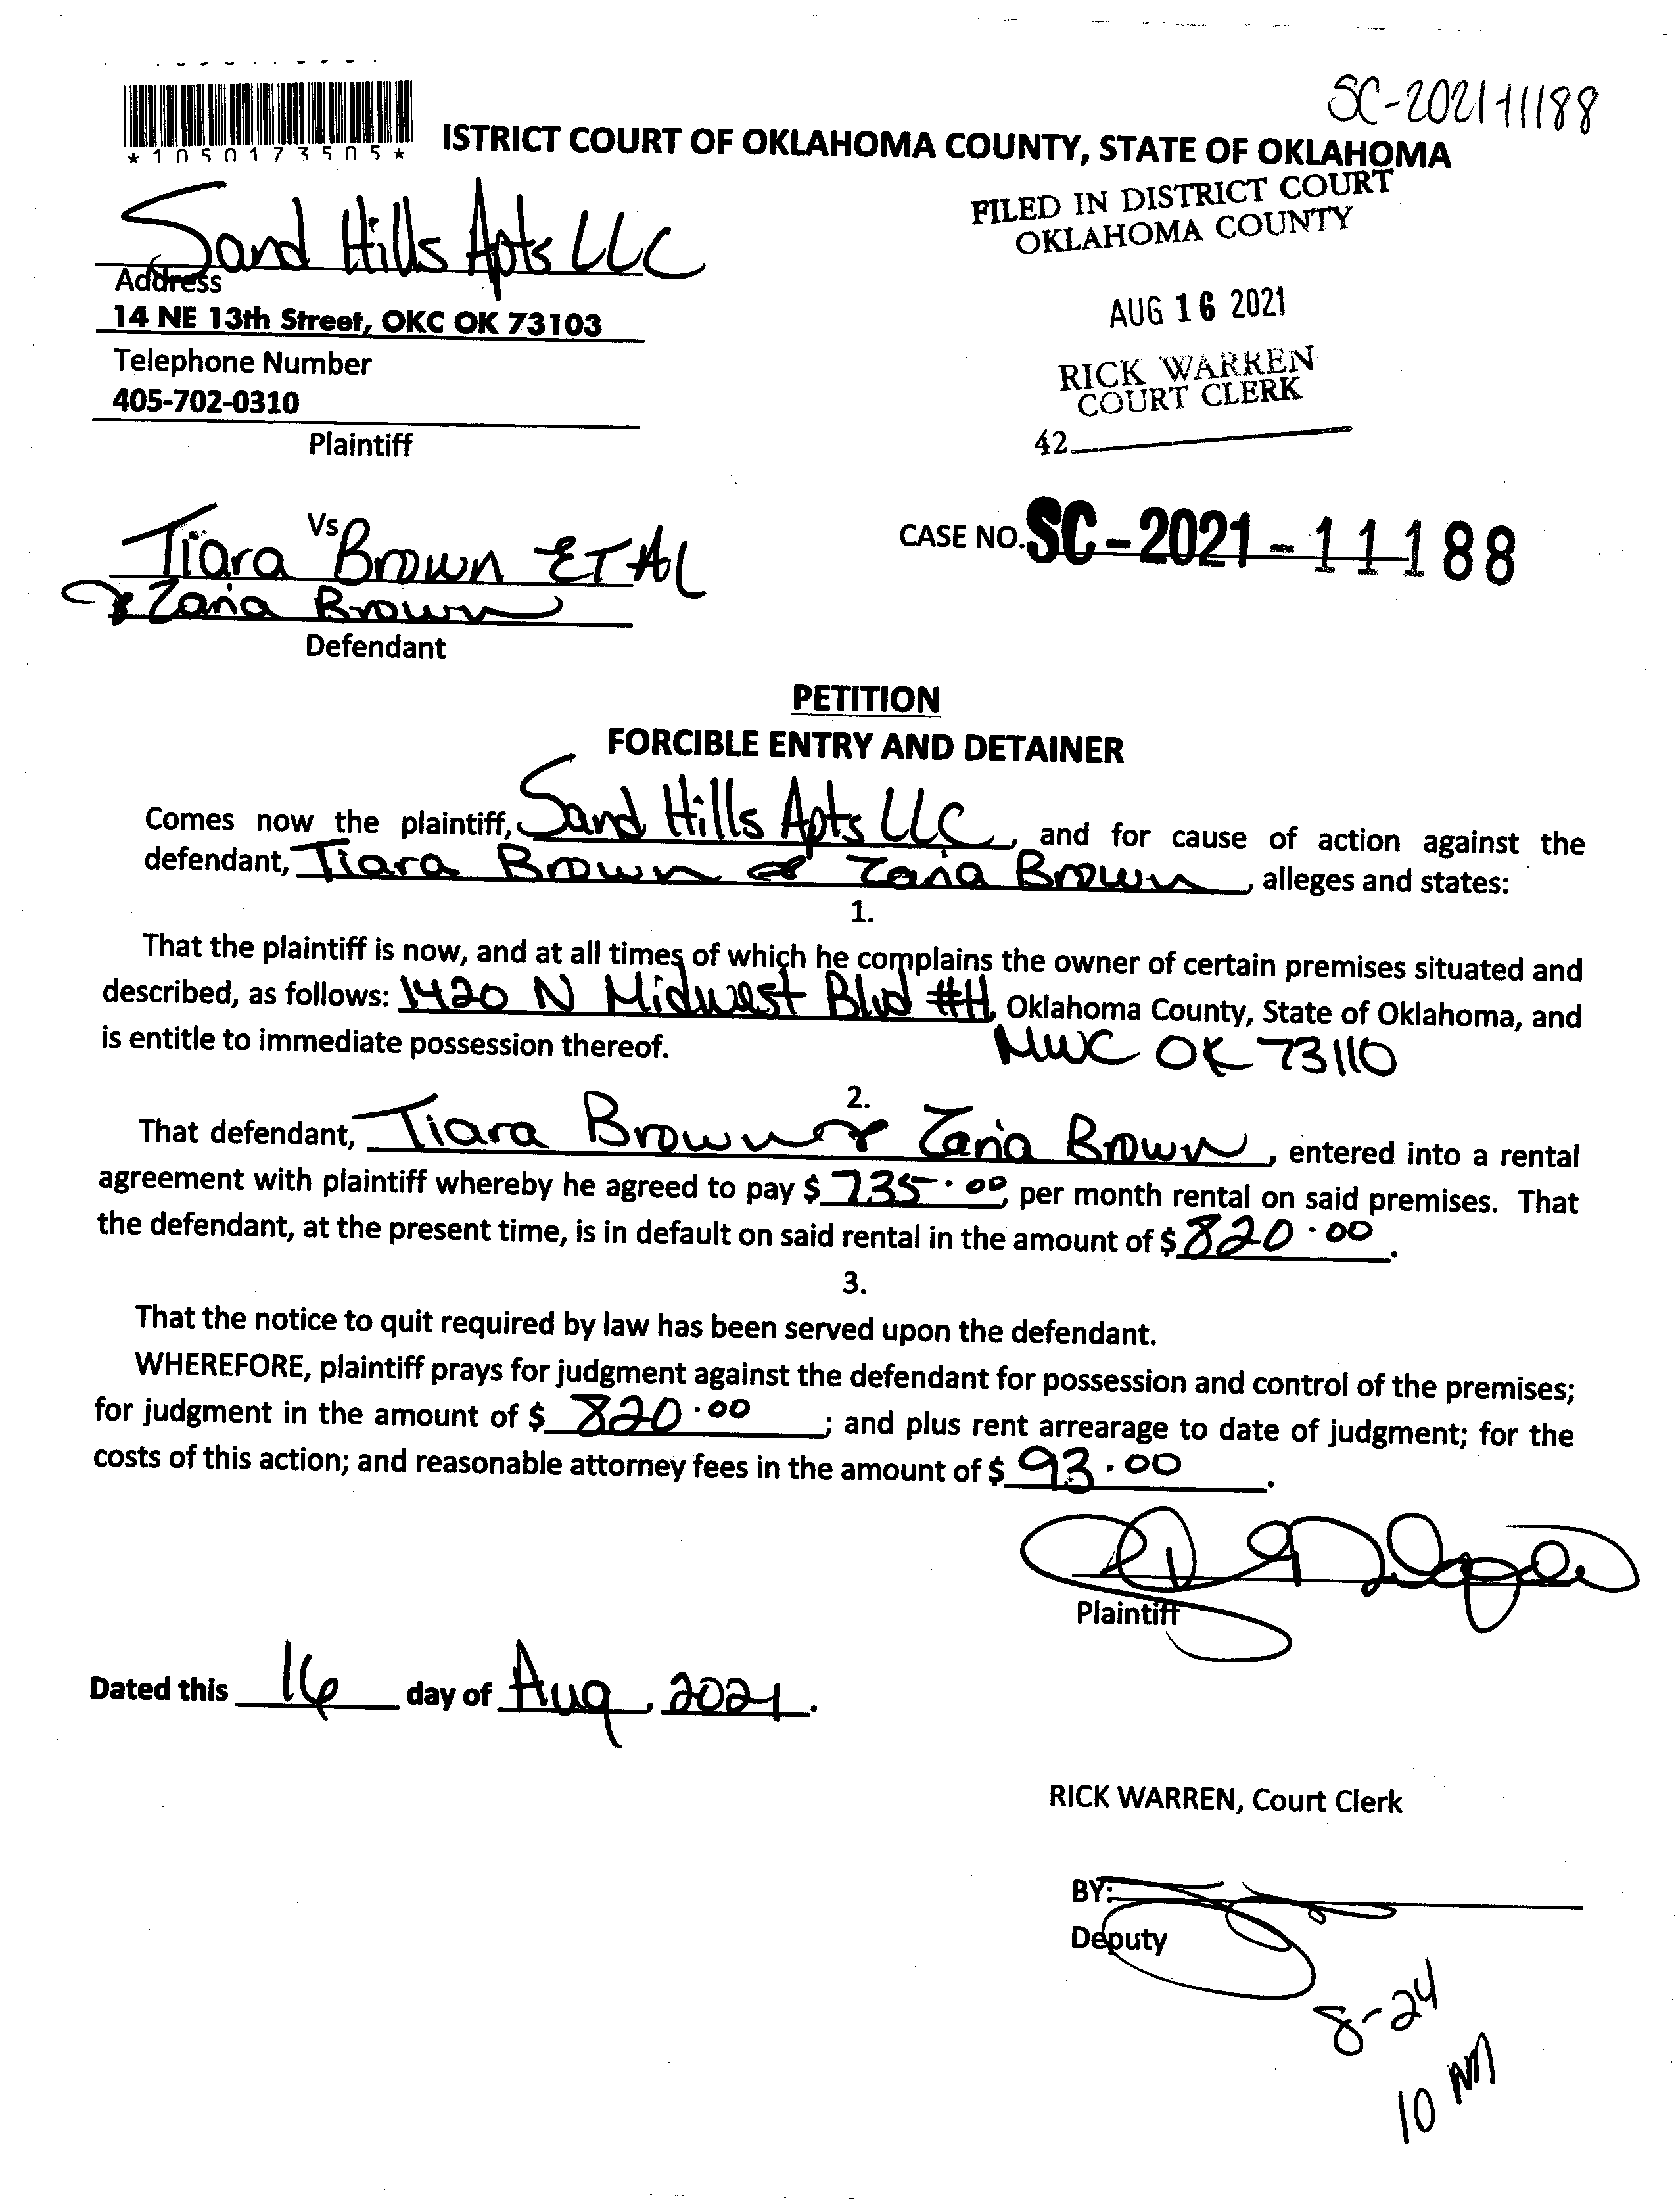 SC-2021-11188
*1050173505*
ISTRICT COURT OF OKLAHOMA COUNTY, STATE OF OKLAHOMA
FILED IN DISTRICT COURT
OKLAHOMA COUNTY
Sand Hills Apts LLC
Address
14 NE 13th Street, OKC OK 73103
AUG 16 2021
Telephone Number
405-702-0310
RICK WARREN
COURT CLERK
Plaintiff
42
Vs
Tiara Brown ET Al
CASE NO. SC-2021-11188
& Zaria Brown
Defendant
PETITION
FORCIBLE ENTRY AND DETAINER
Comes now the plaintiff, Sand Hills Apts LLC, and for cause of action against the
defendant, Tiara Brown & Zaria Brown, alleges and states:
1.
That the plaintiff is now, and at all times of which he complains the owner of certain premises situated and
described, as follows: 1420 N Midwest Blvd #H, Oklahoma County, State of Oklahoma, and
is entitle to immediate possession thereof. MWC OK 73110
2.
That defendant, Tiara Brown & Zaria Brown, entered into a rental
agreement with plaintiff whereby he agreed to pay $ 735.00, per month rental on said premises. That
the defendant, at the present time, is in default on said rental in the amount of $ 820.00.
3.
That the notice to quit required by law has been served upon the defendant.
WHEREFORE, plaintiff prays for judgment against the defendant for possession and control of the premises;
for judgment in the amount of $ 820.00; and plus rent arrearage to date of judgment; for the
costs of this action; and reasonable attorney fees in the amount of $ 93.00.
Plaintiff
Dated this 16 day of Aug, 2021.
RICK WARREN, Court Clerk
BY:
Deputy
8-24
10 AM